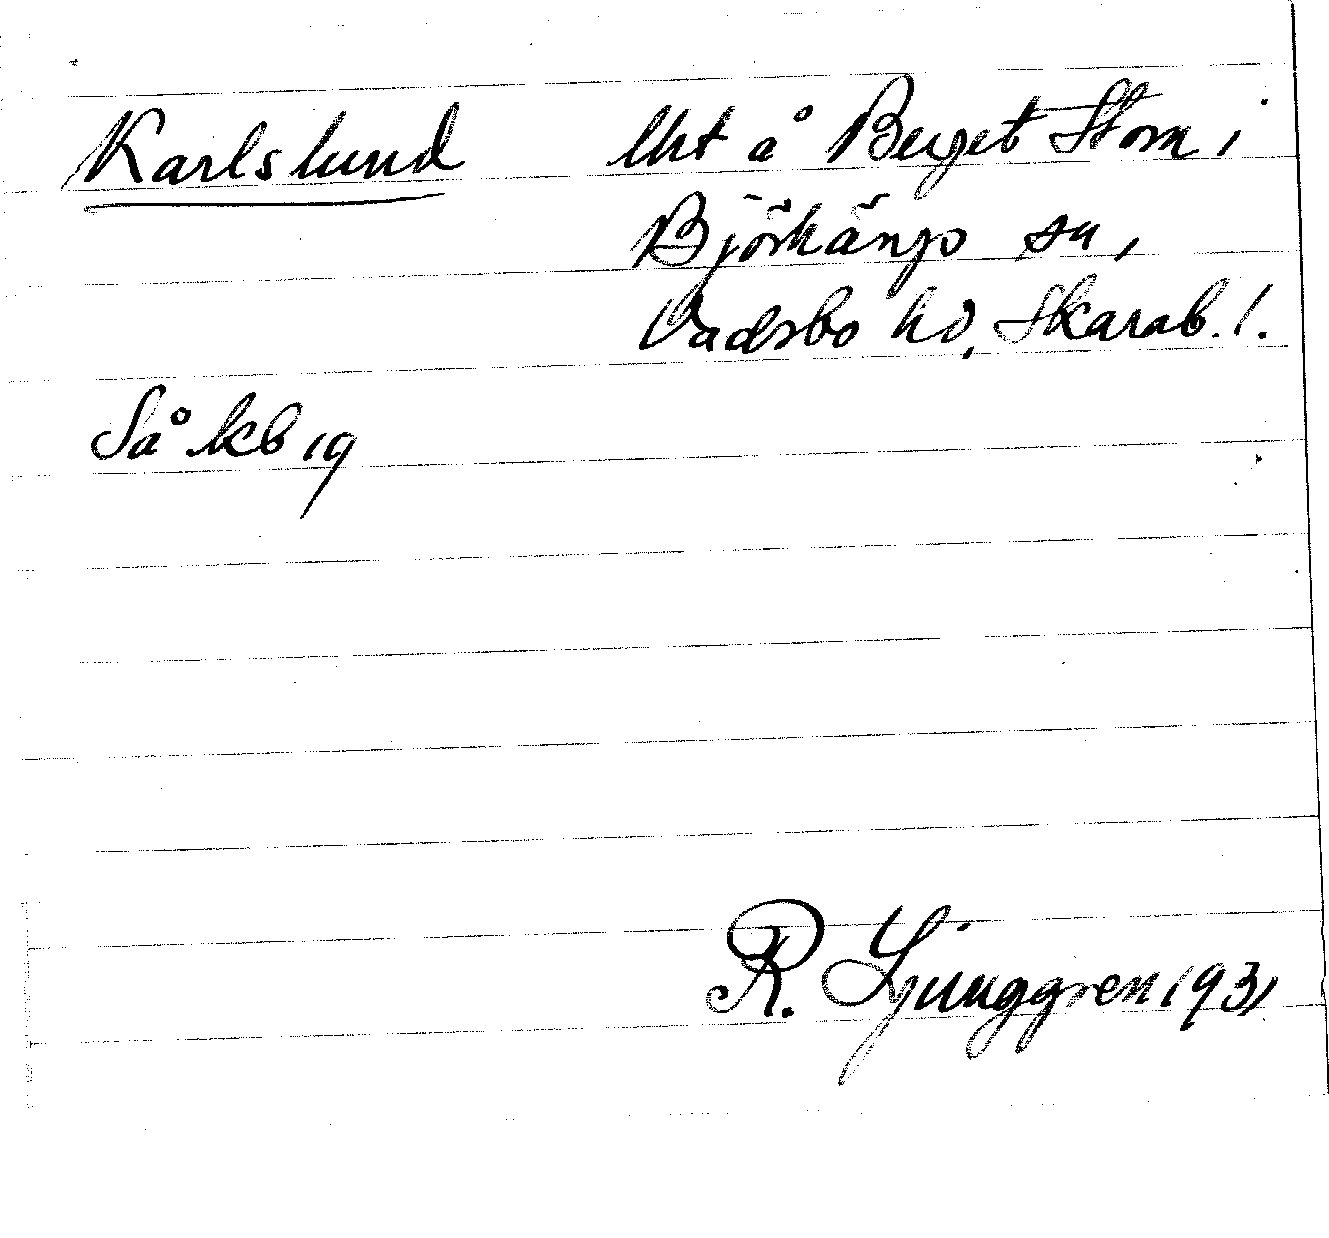 Karlslund lht å Berget Stom i
Björkängs sn,
Vadsbo hd, Skarab. l.
Så kb 19
R. Ljunggren 1931